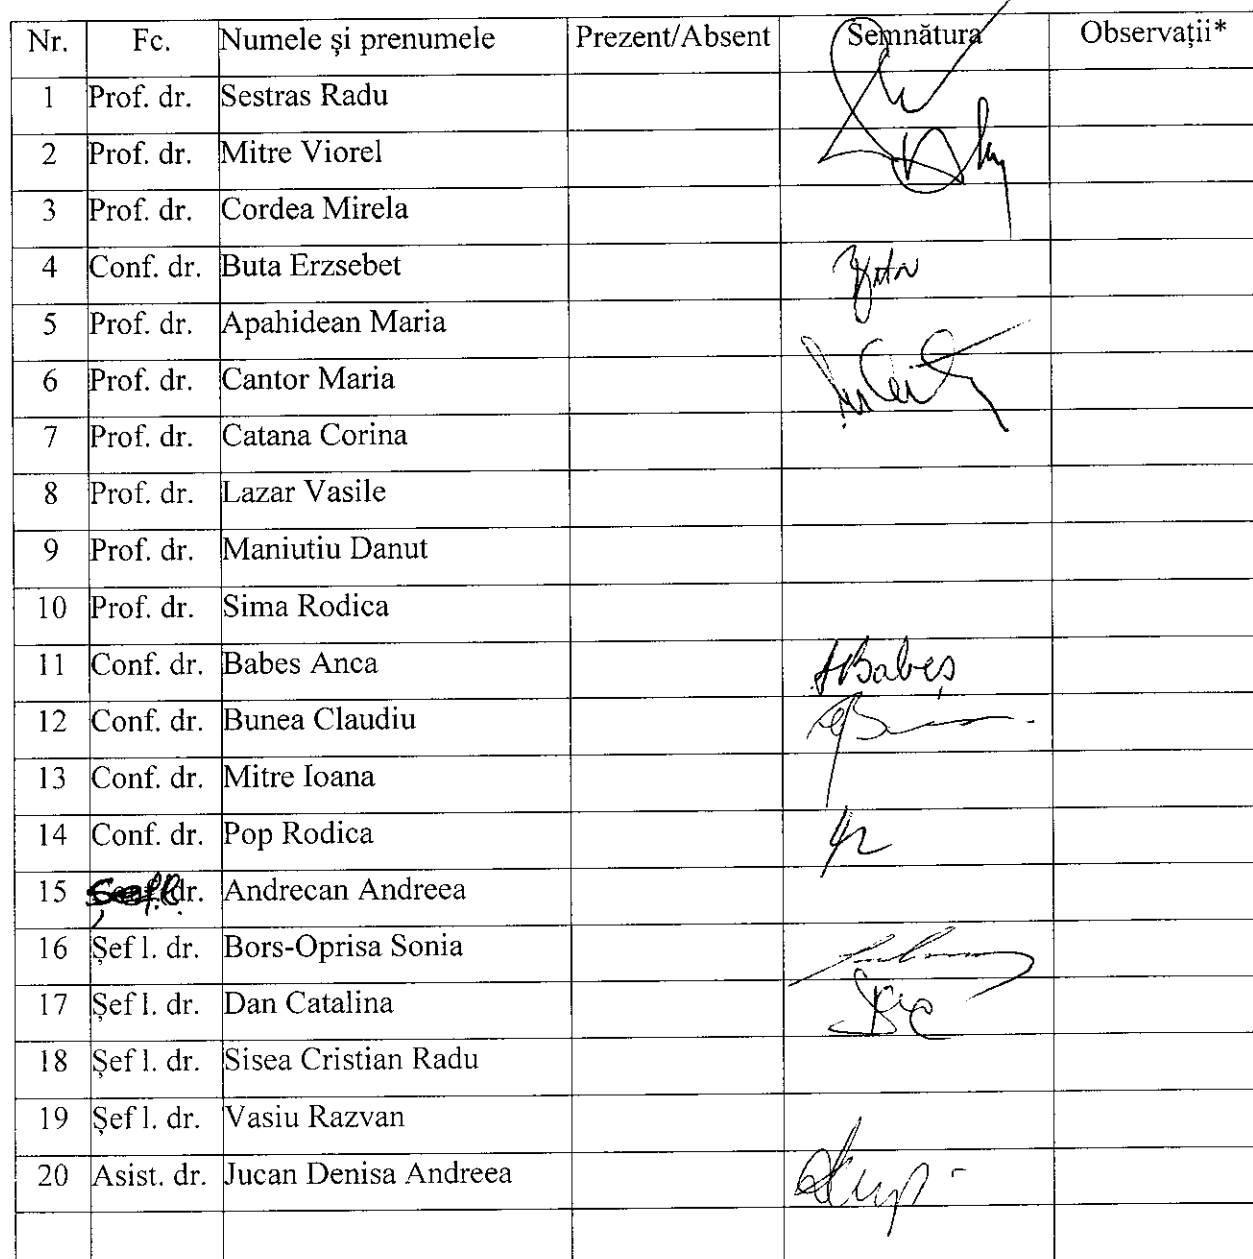 Nr. Fc. Numele și prenumele Prezent/Absent Semnătura Observații*
1 Prof. dr. Sestras Radu
2 Prof. dr. Mitre Viorel
3 Prof. dr. Cordea Mirela
4 Conf. dr. Buta Erzsebet
5 Prof. dr. Apahidean Maria
6 Prof. dr. Cantor Maria
7 Prof. dr. Catana Corina
8 Prof. dr. Lazar Vasile
9 Prof. dr. Maniutiu Danut
10 Prof. dr. Sima Rodica
11 Conf. dr. Babes Anca ABabeș
12 Conf. dr. Bunea Claudiu
13 Conf. dr. Mitre Ioana
14 Conf. dr. Pop Rodica
15 Șef l. dr. Andrecan Andreea
16 Șef l. dr. Bors-Oprisa Sonia
17 Șef l. dr. Dan Catalina
18 Șef l. dr. Sisea Cristian Radu
19 Șef l. dr. Vasiu Razvan
20 Asist. dr. Jucan Denisa Andreea